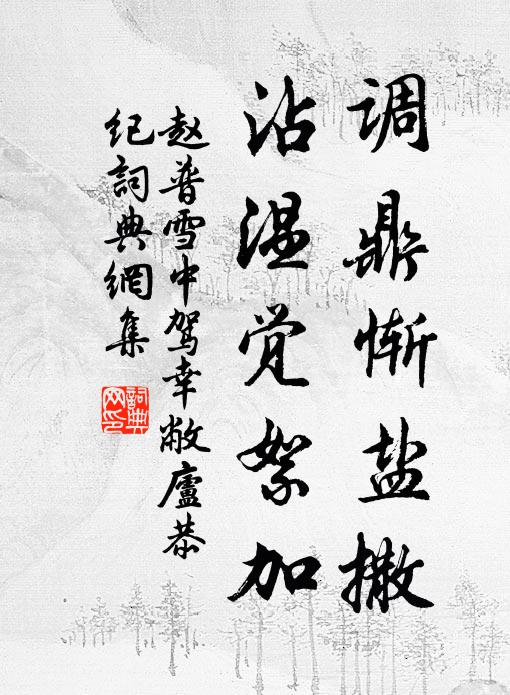 调鼎惭盐撒
沾温觉絮加
赵普雪中驾幸敝廬恭
纪詞典網集
詞典网印